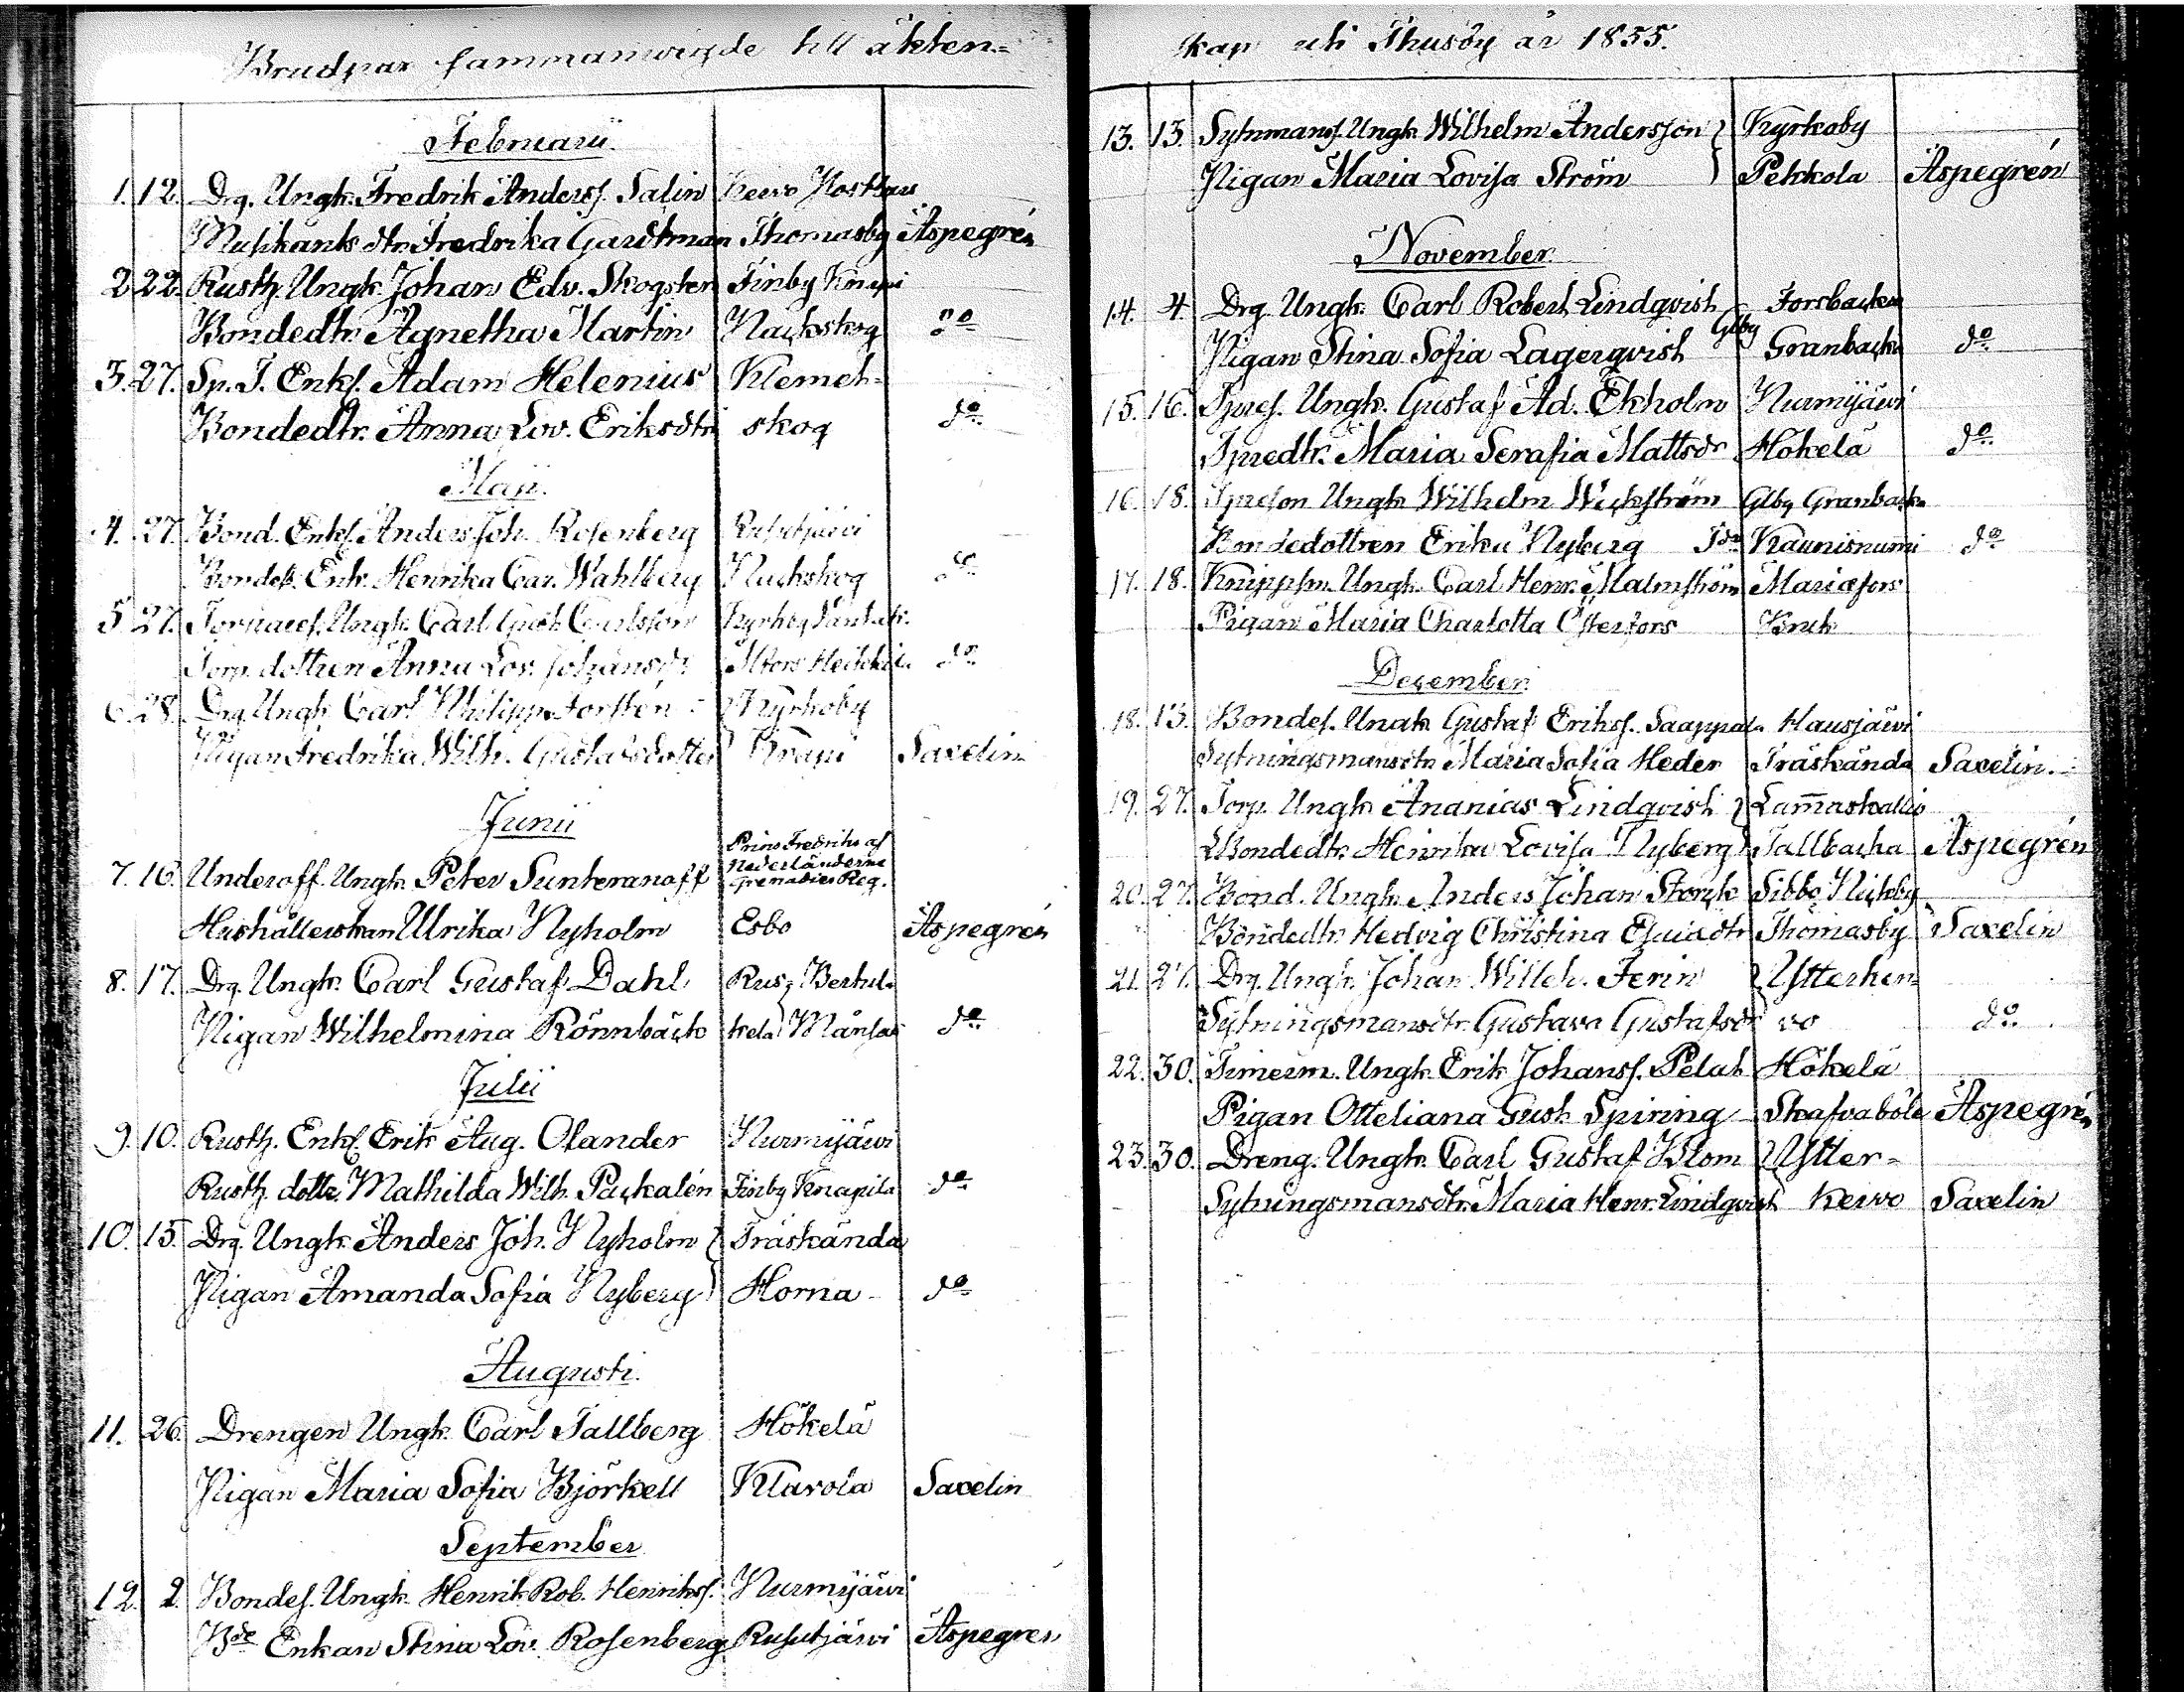 Brudpar sammanwigde till äkten=
Februarii
1. 12. Drg. Ungk. Fredrik Anderss. Salin Kervo Mosthus
Musikants dtr. Fredrika Gardtman Thomasby Aspegrén
2. 22. Rusth. Ungk. Johan Edv. Skogster Finby
Bondedtr. Agnetha Martin Nackskog do
3. 27. Sp. T. Enkl. Adam Helenius Klemet-
Bondedtr. Anna Lov. Eriksdtr skog do
Maji.
4. 27. Bond. Enkl. Anders Joh. Rosenberg Rusutjärvi
Bondek. Enk. Henrika Car. Wahlberg Nackskog do
5. 27. Ungk. Carl Gust. Carlsson
Torp. dottren Anna Lov. Johansdr do
6. 28. Drg. Ungk. Carl Philipp Forstén Kyrkoby
Pigan Fredrika Wilh. Gustafsdotter Krapi Saxelin
Junii
7. 16. Underoff. Ungk. Peter Sunteranoff Prins Fredriks af Nederländerne Grenadier Reg.
Hushållerskan Ulrika Nyholm Esbo Aspegrén
8. 17. Drg. Ungk. Carl Gustaf Dahl Rus, Bertul-
Pigan Wilhelmina Rönnbäck kela Månsas do
Julii
9. 10. Rusth. Enkl. Erik Aug. Olander Nurmijärvi
Rusth. dottr. Mathilda Wilh. Packalén Finby Knapila do
10. 15. Drg. Ungk. Anders Joh. Nyholm Träskända
Pigan Amanda Sofia Nyberg Horna do
Augusti.
11. 26. Drengen Ungk. Carl Tallberg Hökelä
Pigan Maria Sofia Björkell Klavola Saxelin
September
12. 2. Bondes. Ungk. Henrik Rob. Henrikss. Nurmijärvi
Bde Enkan Stina Lov. Rosenberg Rusutjärvi Aspegren
skap uti Thusby år 1855.
13. 13. Sytnmans. Ungk. Wilhelm Andersson Kyrkoby
Pigan Maria Lovisa Ström Pekkola Aspegrén
November
14. 4. Drg. Ungk. Carl Robert Lindqvist Forsbacka
Pigan Stina Sofia Lagerqvist Glby Granbacka do
15. 16. Ungk. Gustaf Ad. Ekholm Nurmijärvi
Maria Serafia Mattsdr Hökelä do
16. 18. Ungk. Wilhelm Wickström Glby Granbacka
Bondedottren Erika Nyberg Kaunisnumi do
17. 18. Ungk. Carl Henr. Malmström Mariæfors
Pigan Maria Charlotta Österfors Bruk
December
18. 13. Bondes. Ungk. Gustaf Erikss. Saappala Hausjärvi
Sytningsmansdtr. Maria Sofia Heder Träskända Saxelin.
19. 27. Torp. Ungk. Ananias Lindqvist Lam̄askallio
Bondedtr. Henrika Lovisa Nyberg Tallbacka Aspegrén
20. 27. Bond. Ungk. Anders Johan Storck Sibbo Nickby
Bondedtr. Hedvig Christina Esaiædtr Thomasby Saxelin
21. 27. Drg. Ungk. Johan Willeh. Ferin Ytterker-
Sytningsmansdtr. Gustava Gustafsdr vo do
22. 30. Timerm. Ungk. Erik Johanss. Pelat Hökelä
Pigan Otteliana Gust. Spiring Skafvaböle Aspegrén
23. 30. Dreng. Ungk. Carl Gustaf Blom Ytter-
Sytningsmansdtr. Maria Henr. Lindqvist kervo Saxelin